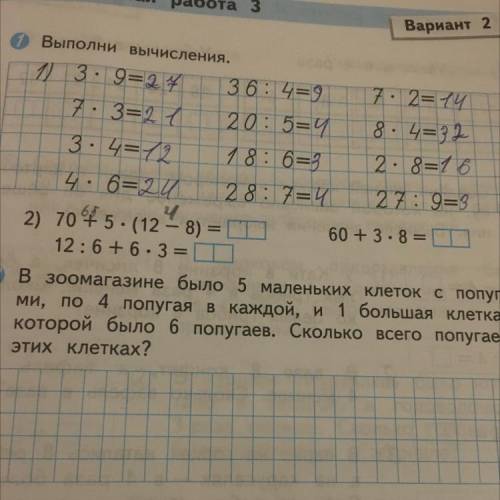 работа 3
Вариант 2
1 Выполни вычисления.
1) 3 · 9=27 36 : 4=9 7 · 2=14
7 · 3=21 20 : 5=4 8 · 4=32
3 · 4=12 18 : 6=3 2 · 8=16
4 · 6=24 28 : 7=4 27 : 9=3
4
2) 70 + 5 · (12 − 8) = 60 + 3 · 8 =
12 : 6 + 6 · 3 =
В зоомагазине было 5 маленьких клеток с попуг
ми, по 4 попугая в каждой, и 1 большая клетка
которой было 6 попугаев. Сколько всего попугае
этих клетках?